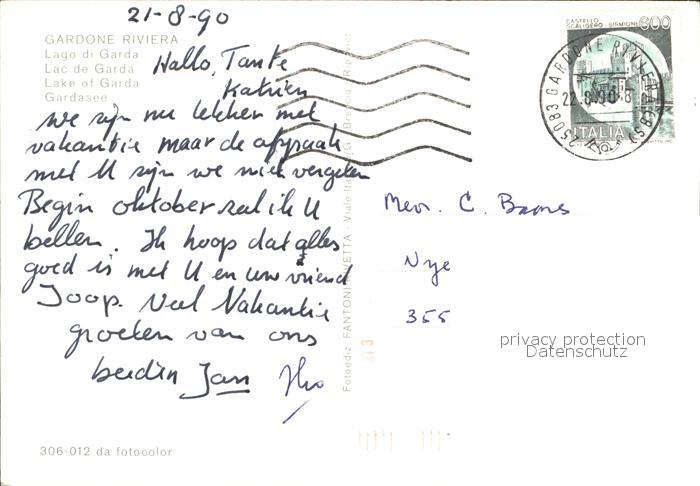 21-8-90
GARDONE RIVIERA
Lago di Garda
Lac de Garda
Lake of Garda
Gardasee
Hallo, Tante
Katrien
we zijn nu lekker met
vakantie maar de afspraak
met U zijn we niet vergeten
Begin oktober zal ik U
bellen. Ik hoop dat alles
goed is met U en uw vriend
Joop. Veel Vakantie
groeten van ons
beiden Jan
306-012 da fotocolor
Fotoediz. FANTONI
Mevr. C.
Nye
355
privacy protection
Datenschutz
CASTELLO
SCALIGERO - SIRMIONE
600
ITALIA
25083 GARDONE RIVIERA
22.8.90